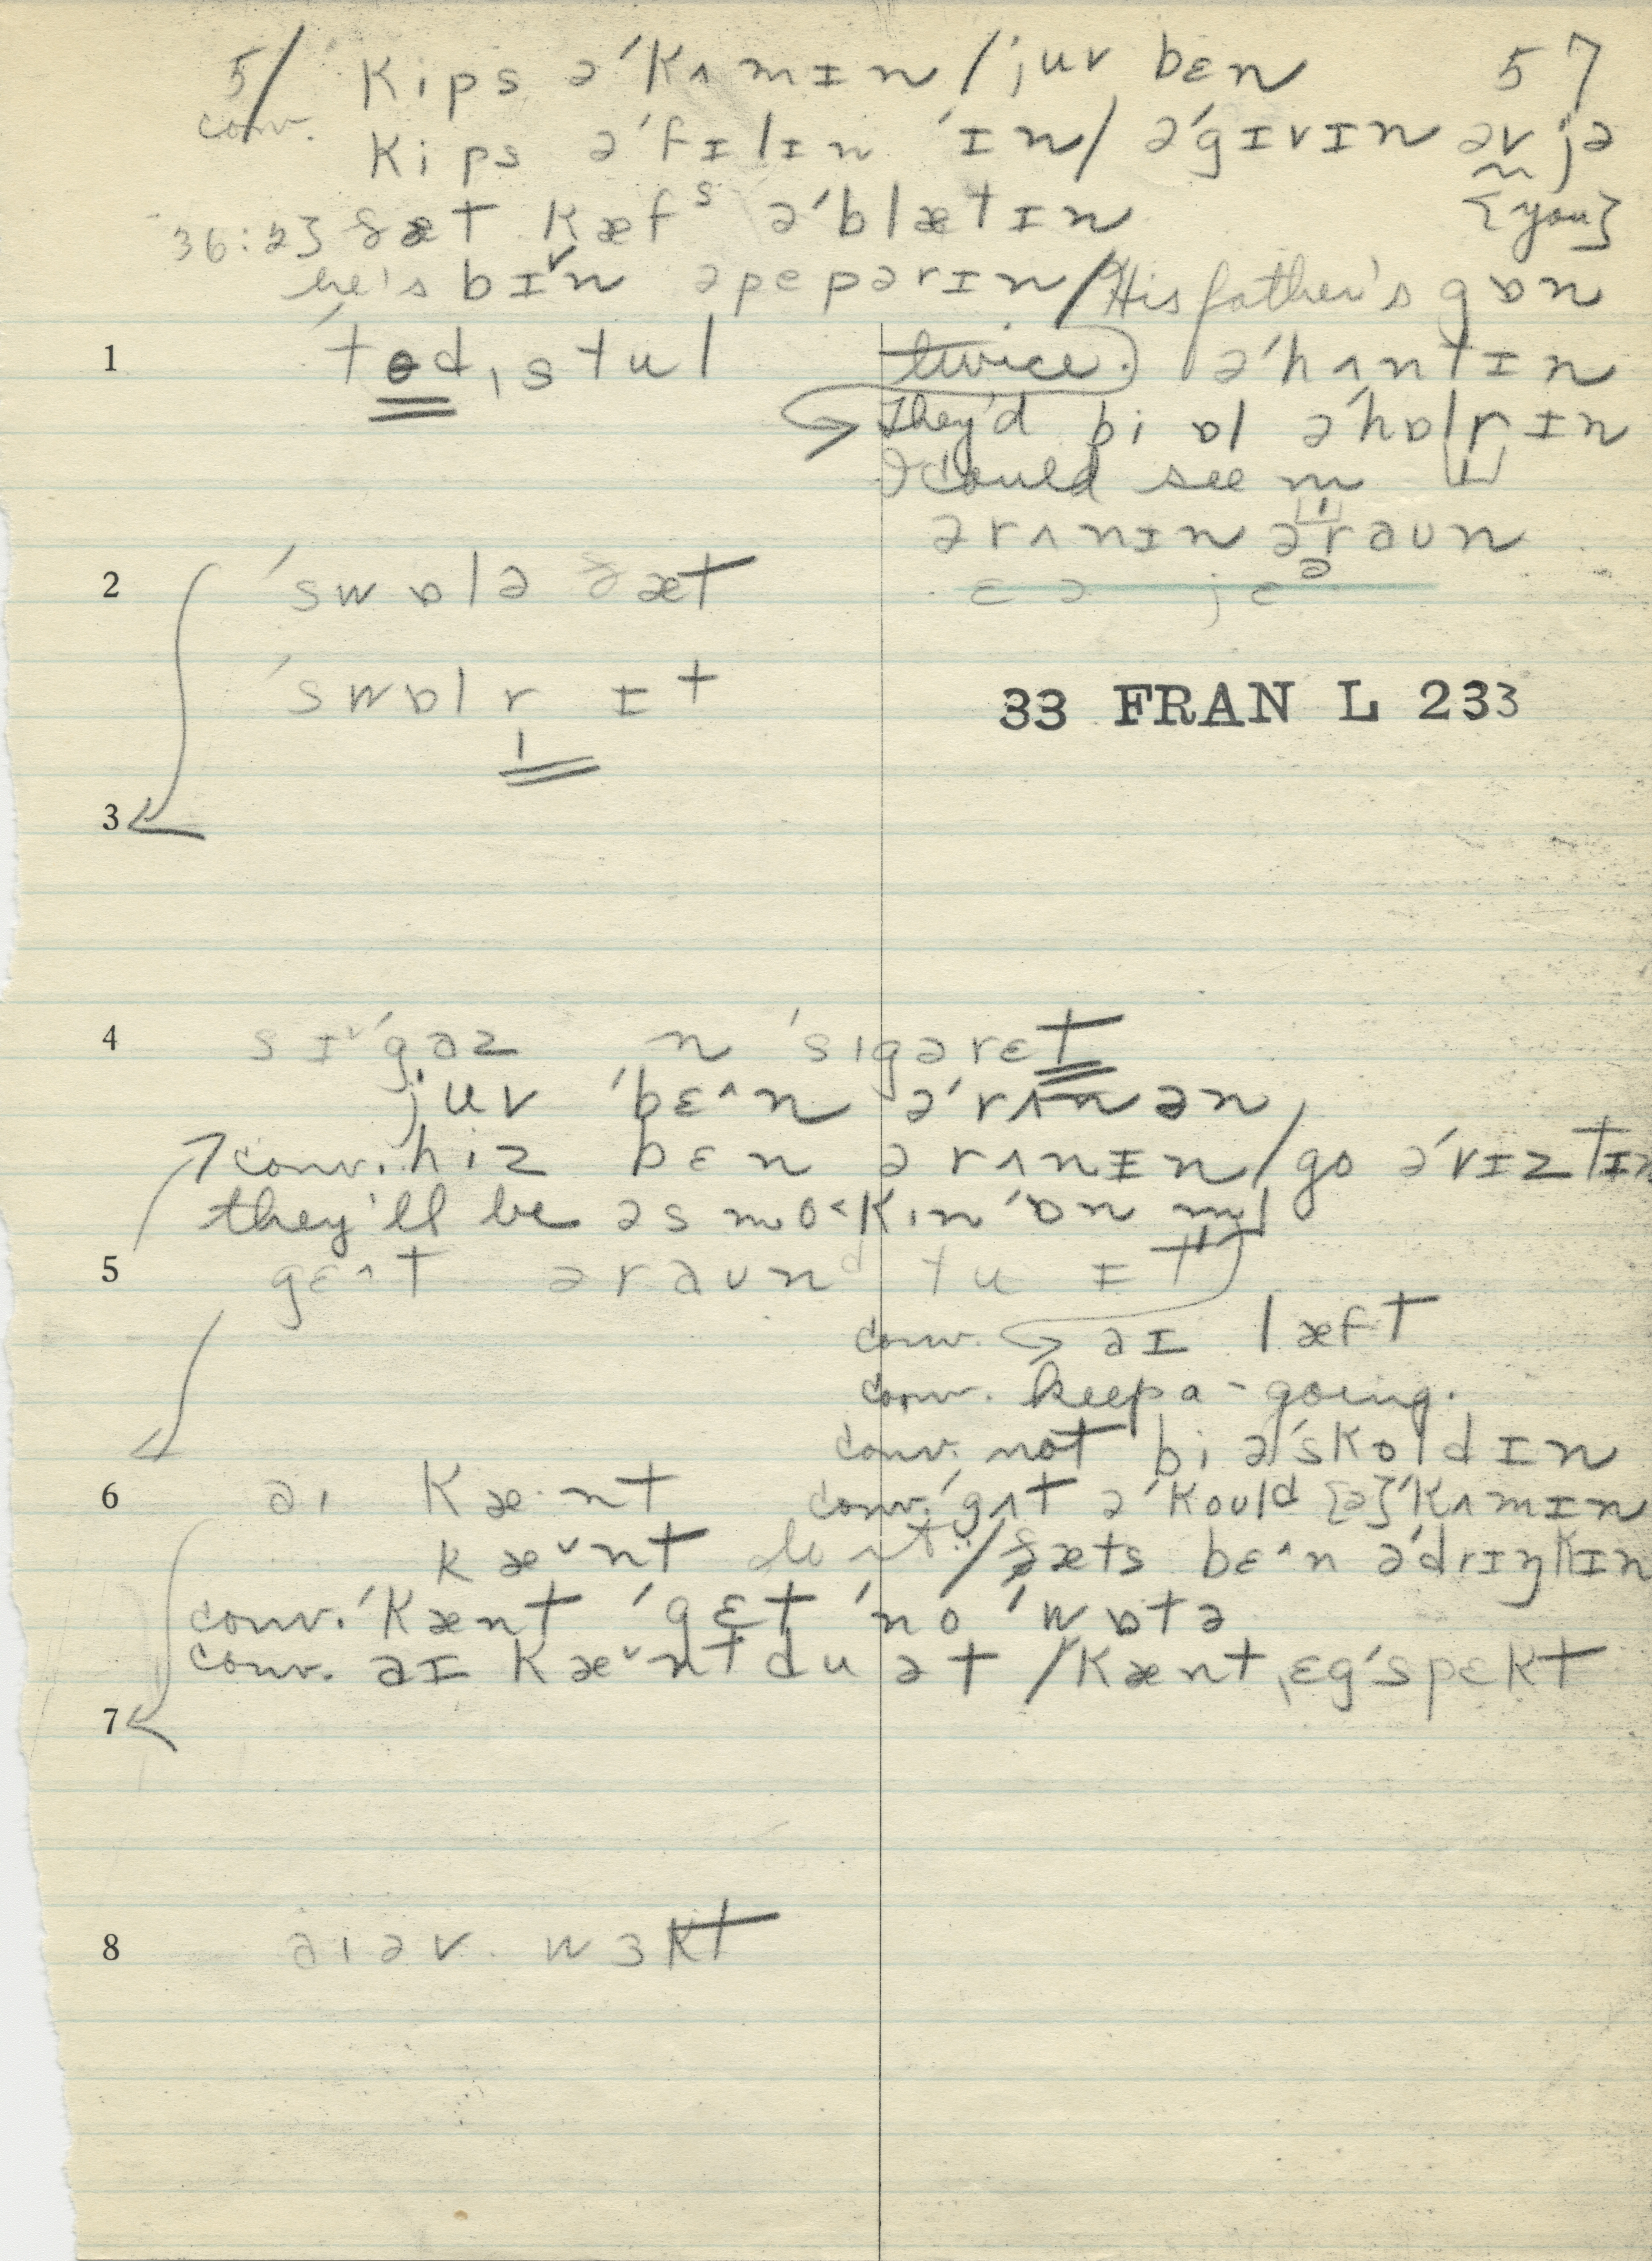 5/ kips ə'kʌmɪn / juv bɛn 57
conv. kips ə'fɪlɪn 'ɪn / ə'gɪvɪn əv jə
36:23 ðæt kæfˢ ə'blætɪn {you}
he's bɪ˅n əpepərɪn / His father's gɒn
1 'tɵdˌstul twice. ə'hʌntɪn
They'd bi ɒl ə'hɒlrɪn
I could see m
ərʌnɪn əraun
2 'swɒlə ðæt
'swɒlr ɪt
33 FRAN L 233
3
4 sɪ˅'gɑz n 'sigərɛt
juv 'bɛ^n ə'rʌnən
conv. hiz bɛn ərʌnɪn / go ə'vɪztɪn
they'll be əsmo<kin 'ɒn m
5 gɛ^t əraunᵈ tu ɪt
conv. aɪ læft
conv. keep a-going.
conv. not bi ə'skoldɪn
6 ai kæ·nt conv. 'gʌt ə'kould [ə]'kʌmɪn
kæ˅nt / ðæts bɛ^n ə'drɪŋkɪn
conv. 'kænt 'gɛt 'no 'wɒtə
conv. aɪ kæ˅nt du ət / kænt ˌɛg'spɛkt
7
8 aiəv wɜkt